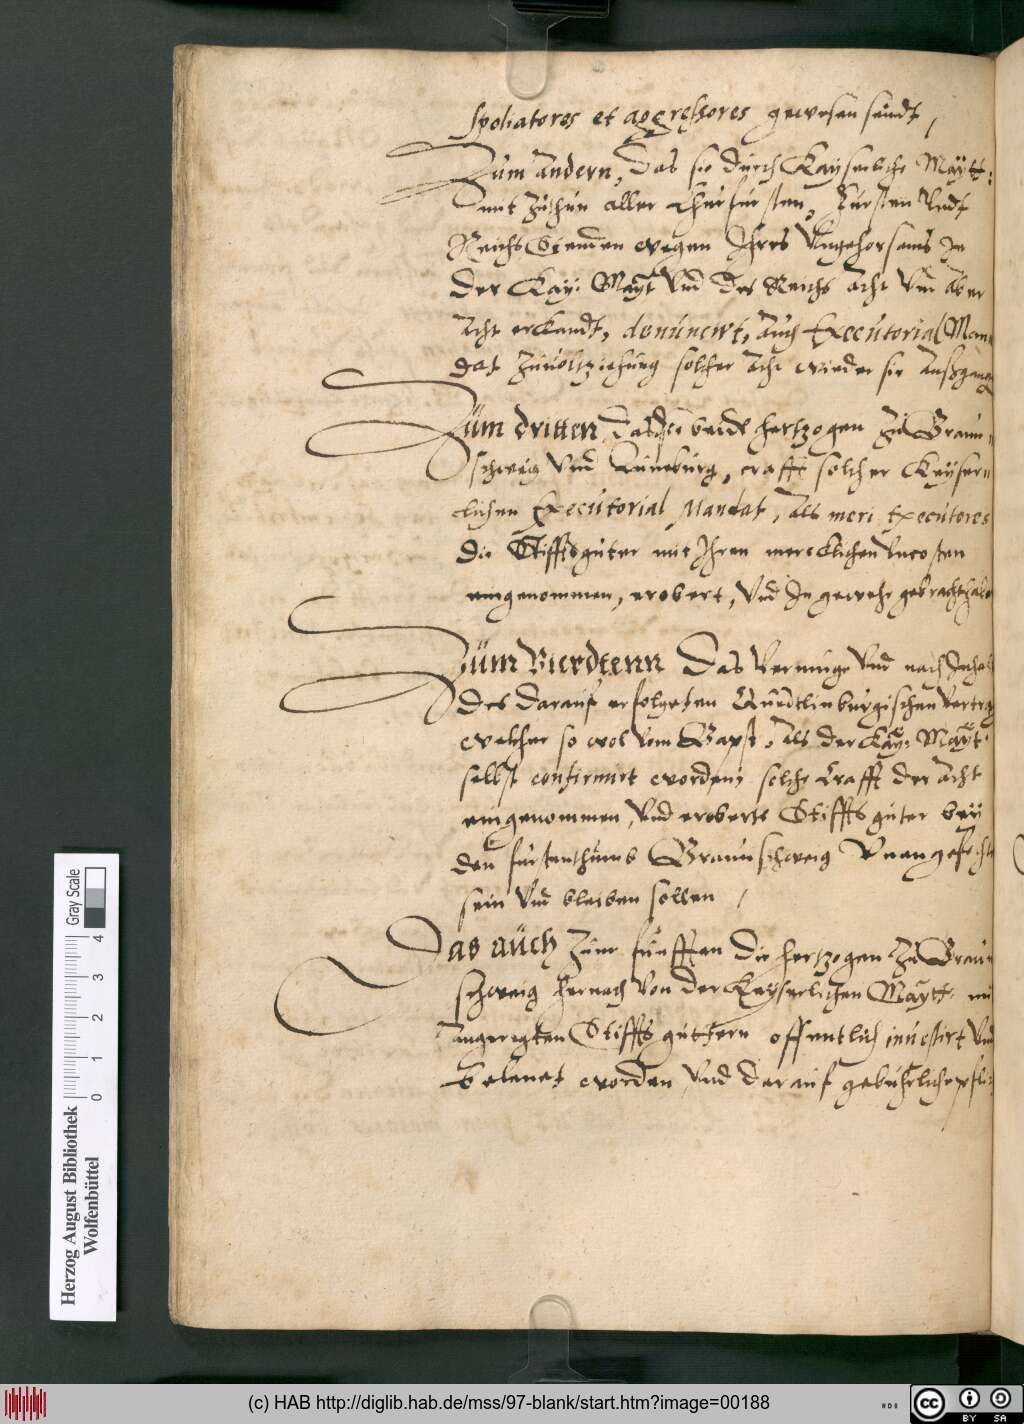 Spoliatores et aggressores gewesen seindt,
Zum andern, Das sie durch Kayserliche Maytt:
mit zuthun aller Churfursten, Fursten Undt
Reichs Stenden wegen Ihres Ungehorsams In
der Kay: Mayt Und des Reichs acht Und Aber
Acht erkandt, denuncirt, auch Executorial Man
dat zuuolziehung solcher Acht wieder sie Außgangen
Züm dritten, Das die beide hertzogen zu Braun
schweig Und Luneburg, crafft solcher Keyser
lichen Executorial Mandat, Als meri Executores
die Stifftsguter mit Ihren mercklichen Uncosten
eingenommen, erobert, Und In gewehr gebracht habe
Züm Vierdtenn Das Vermuge Und nach Inhalt
des darauf erfolgeten Quedtlinburgischen Vertrag
welcher so wol vom Bapst, Als der Kay: Mayt:
selbst confirmirt worden, solche Krafft der Acht
eingenommen, Und eroberte Stiffts guter bey
den furstenthumb Braunschweig Unangefecht
sein Und bleiben sollen,
Das aüch zum funfften die hertzogen zu Braun
schweig hernach Von der Keyserlichen Maytt: mi
angeregten Stiffts guttern offentlich inuestirt Und
belenet worden, Und darauf geburliche pfli
Herzog August Bibliothek
Wolfenbüttel
0 1 2 3 4
Gray Scale
(c) HAB http://diglib.hab.de/mss/97-blank/start.htm?image=00188
cc BY SA